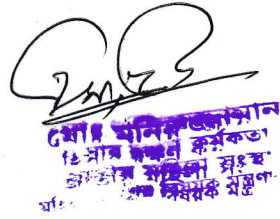 মোঃ মনিরুজ্জামান
হিসাব রক্ষণ কর্মকর্তা
জাতীয় মহিলা সংস্থা
বিষয়ক মন্ত্রণা